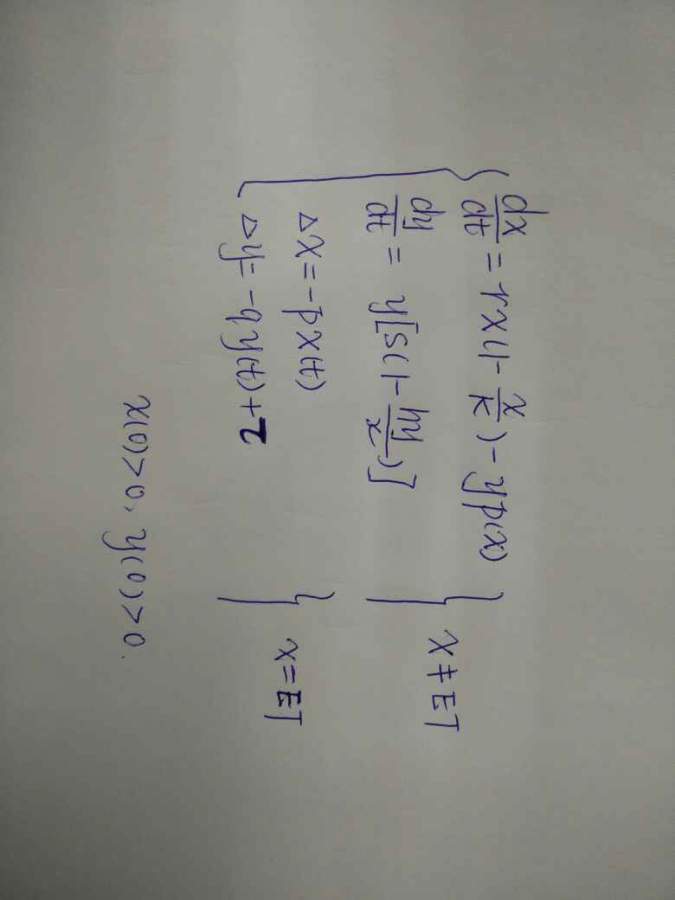 dx/dt = rx(1 - x/k) - yp(x)
dy/dt = y[s(1 - hy/x)]
x ≠ ET
Δx = -px(t)
Δy = -qy(t) + τ
x = ET
x(0)>0, y(0)>0.